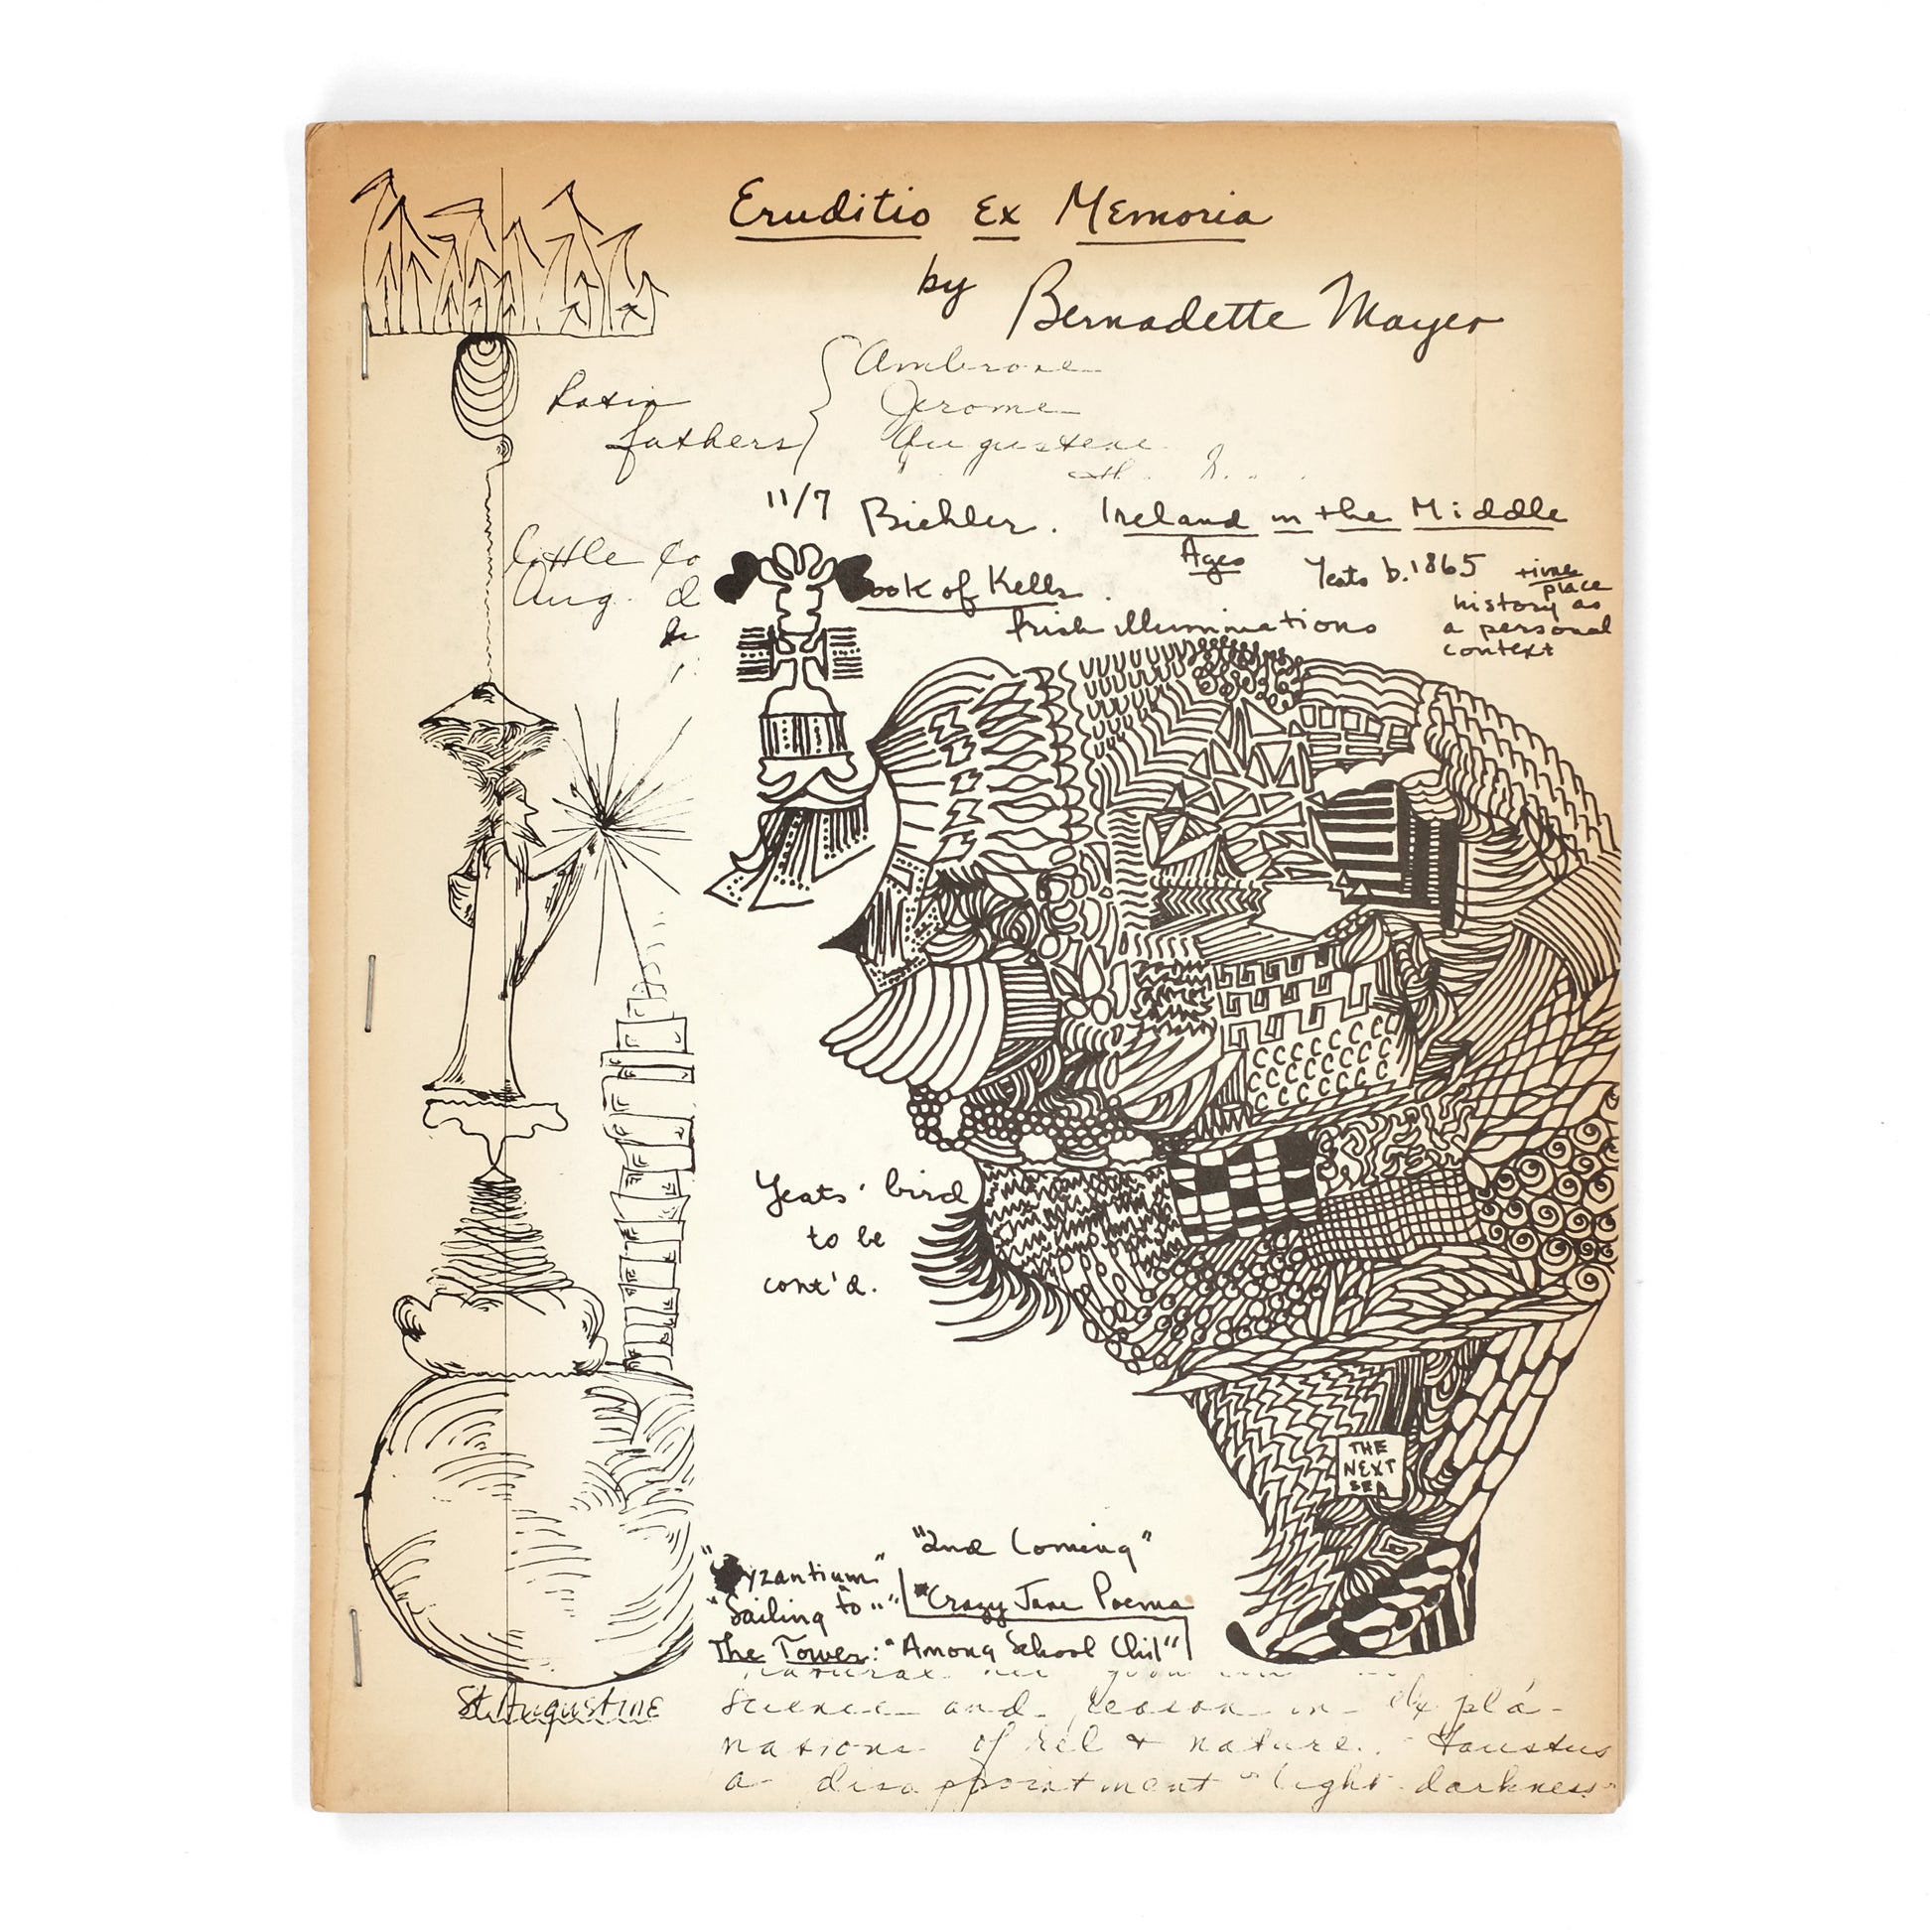 Eruditio Ex Memoria
by Bernadette Mayer
Latin fathers { Ambrose
Jerome
Augustine
11/7 Biehler. Ireland in the Middle
Ages
Yeats b. 1865
time
place
history as
a personal
context
ook of Kells.
Irish illuminations
little
Aug. d
Yeats' bird
to be
cont'd.
THE
NEXT
SEA
"2nd Coming"
"Byzantium"
"Sailing to " "
"Crazy Jane Poems
The Tower: "Among School Chil"
St. Augustine
science and reason in expla-
nations of rel & nature. Faustus
a disappointment "light-darkness"